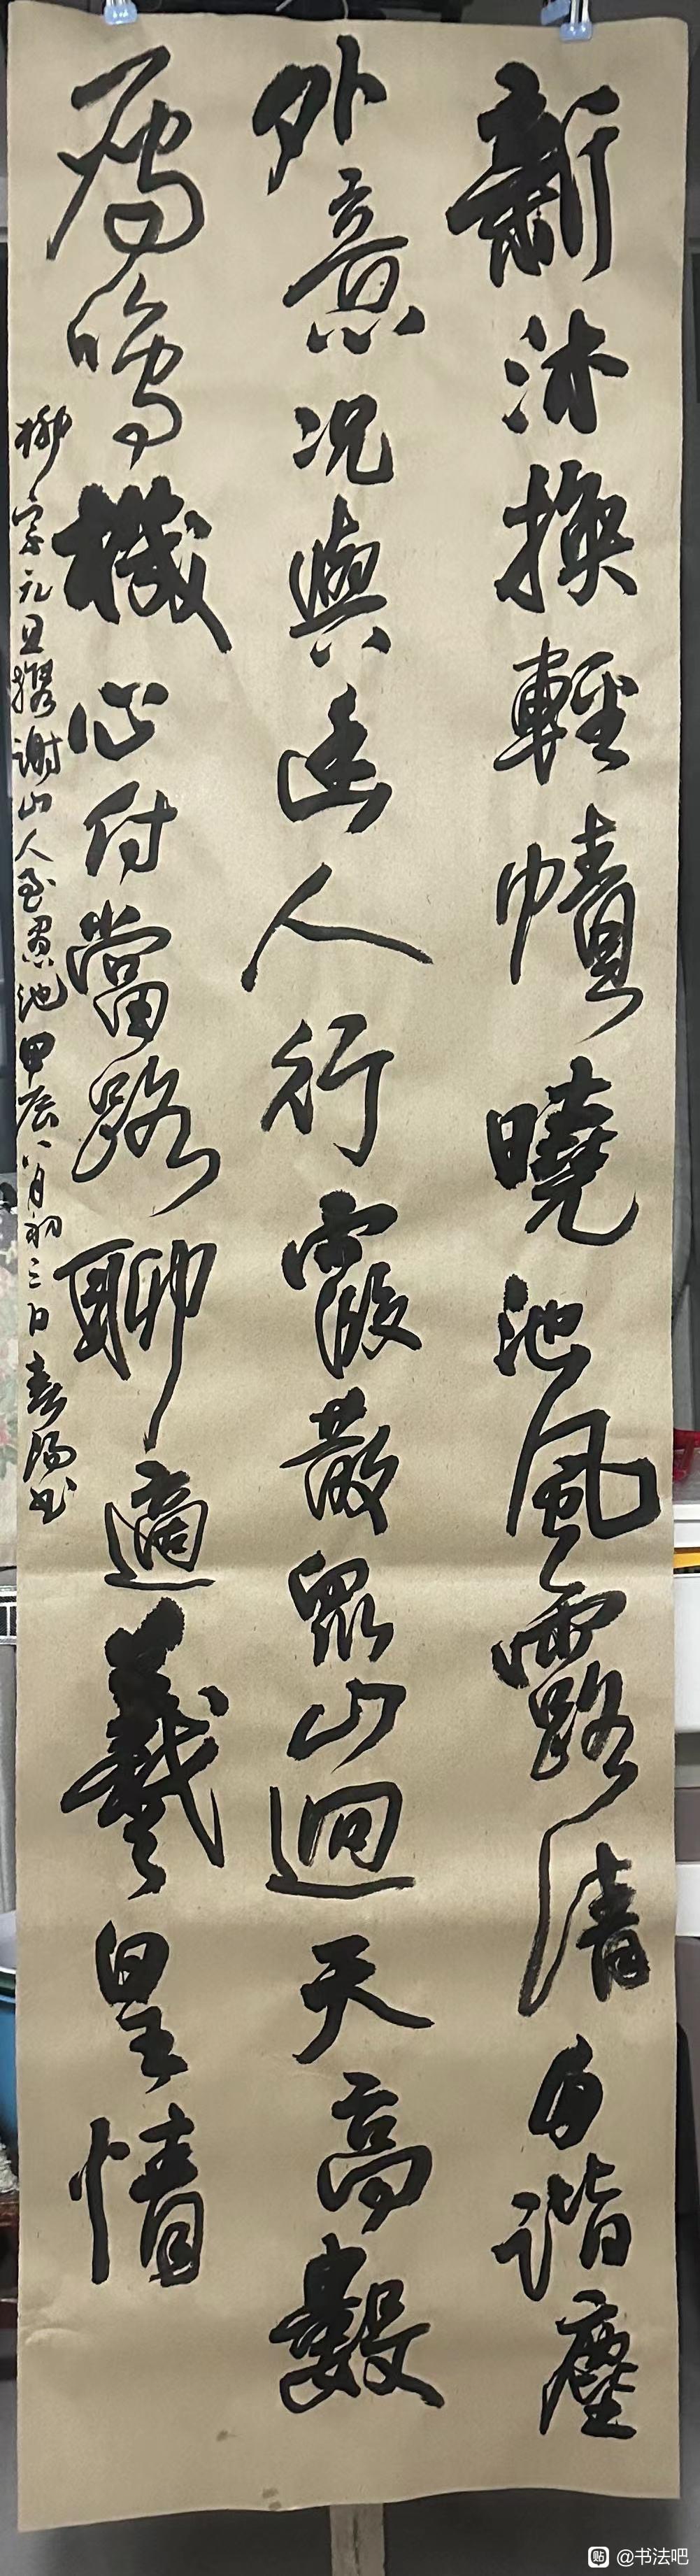 新沐換輕幘曉池風露清自諧塵
外意况與幽人行霞散衆山迥天高數
雁鳴機心付當路聊適羲皇情
柳宗元旦攜謝山人至愚池甲辰八月初三日春陽书
貼 @书法吧